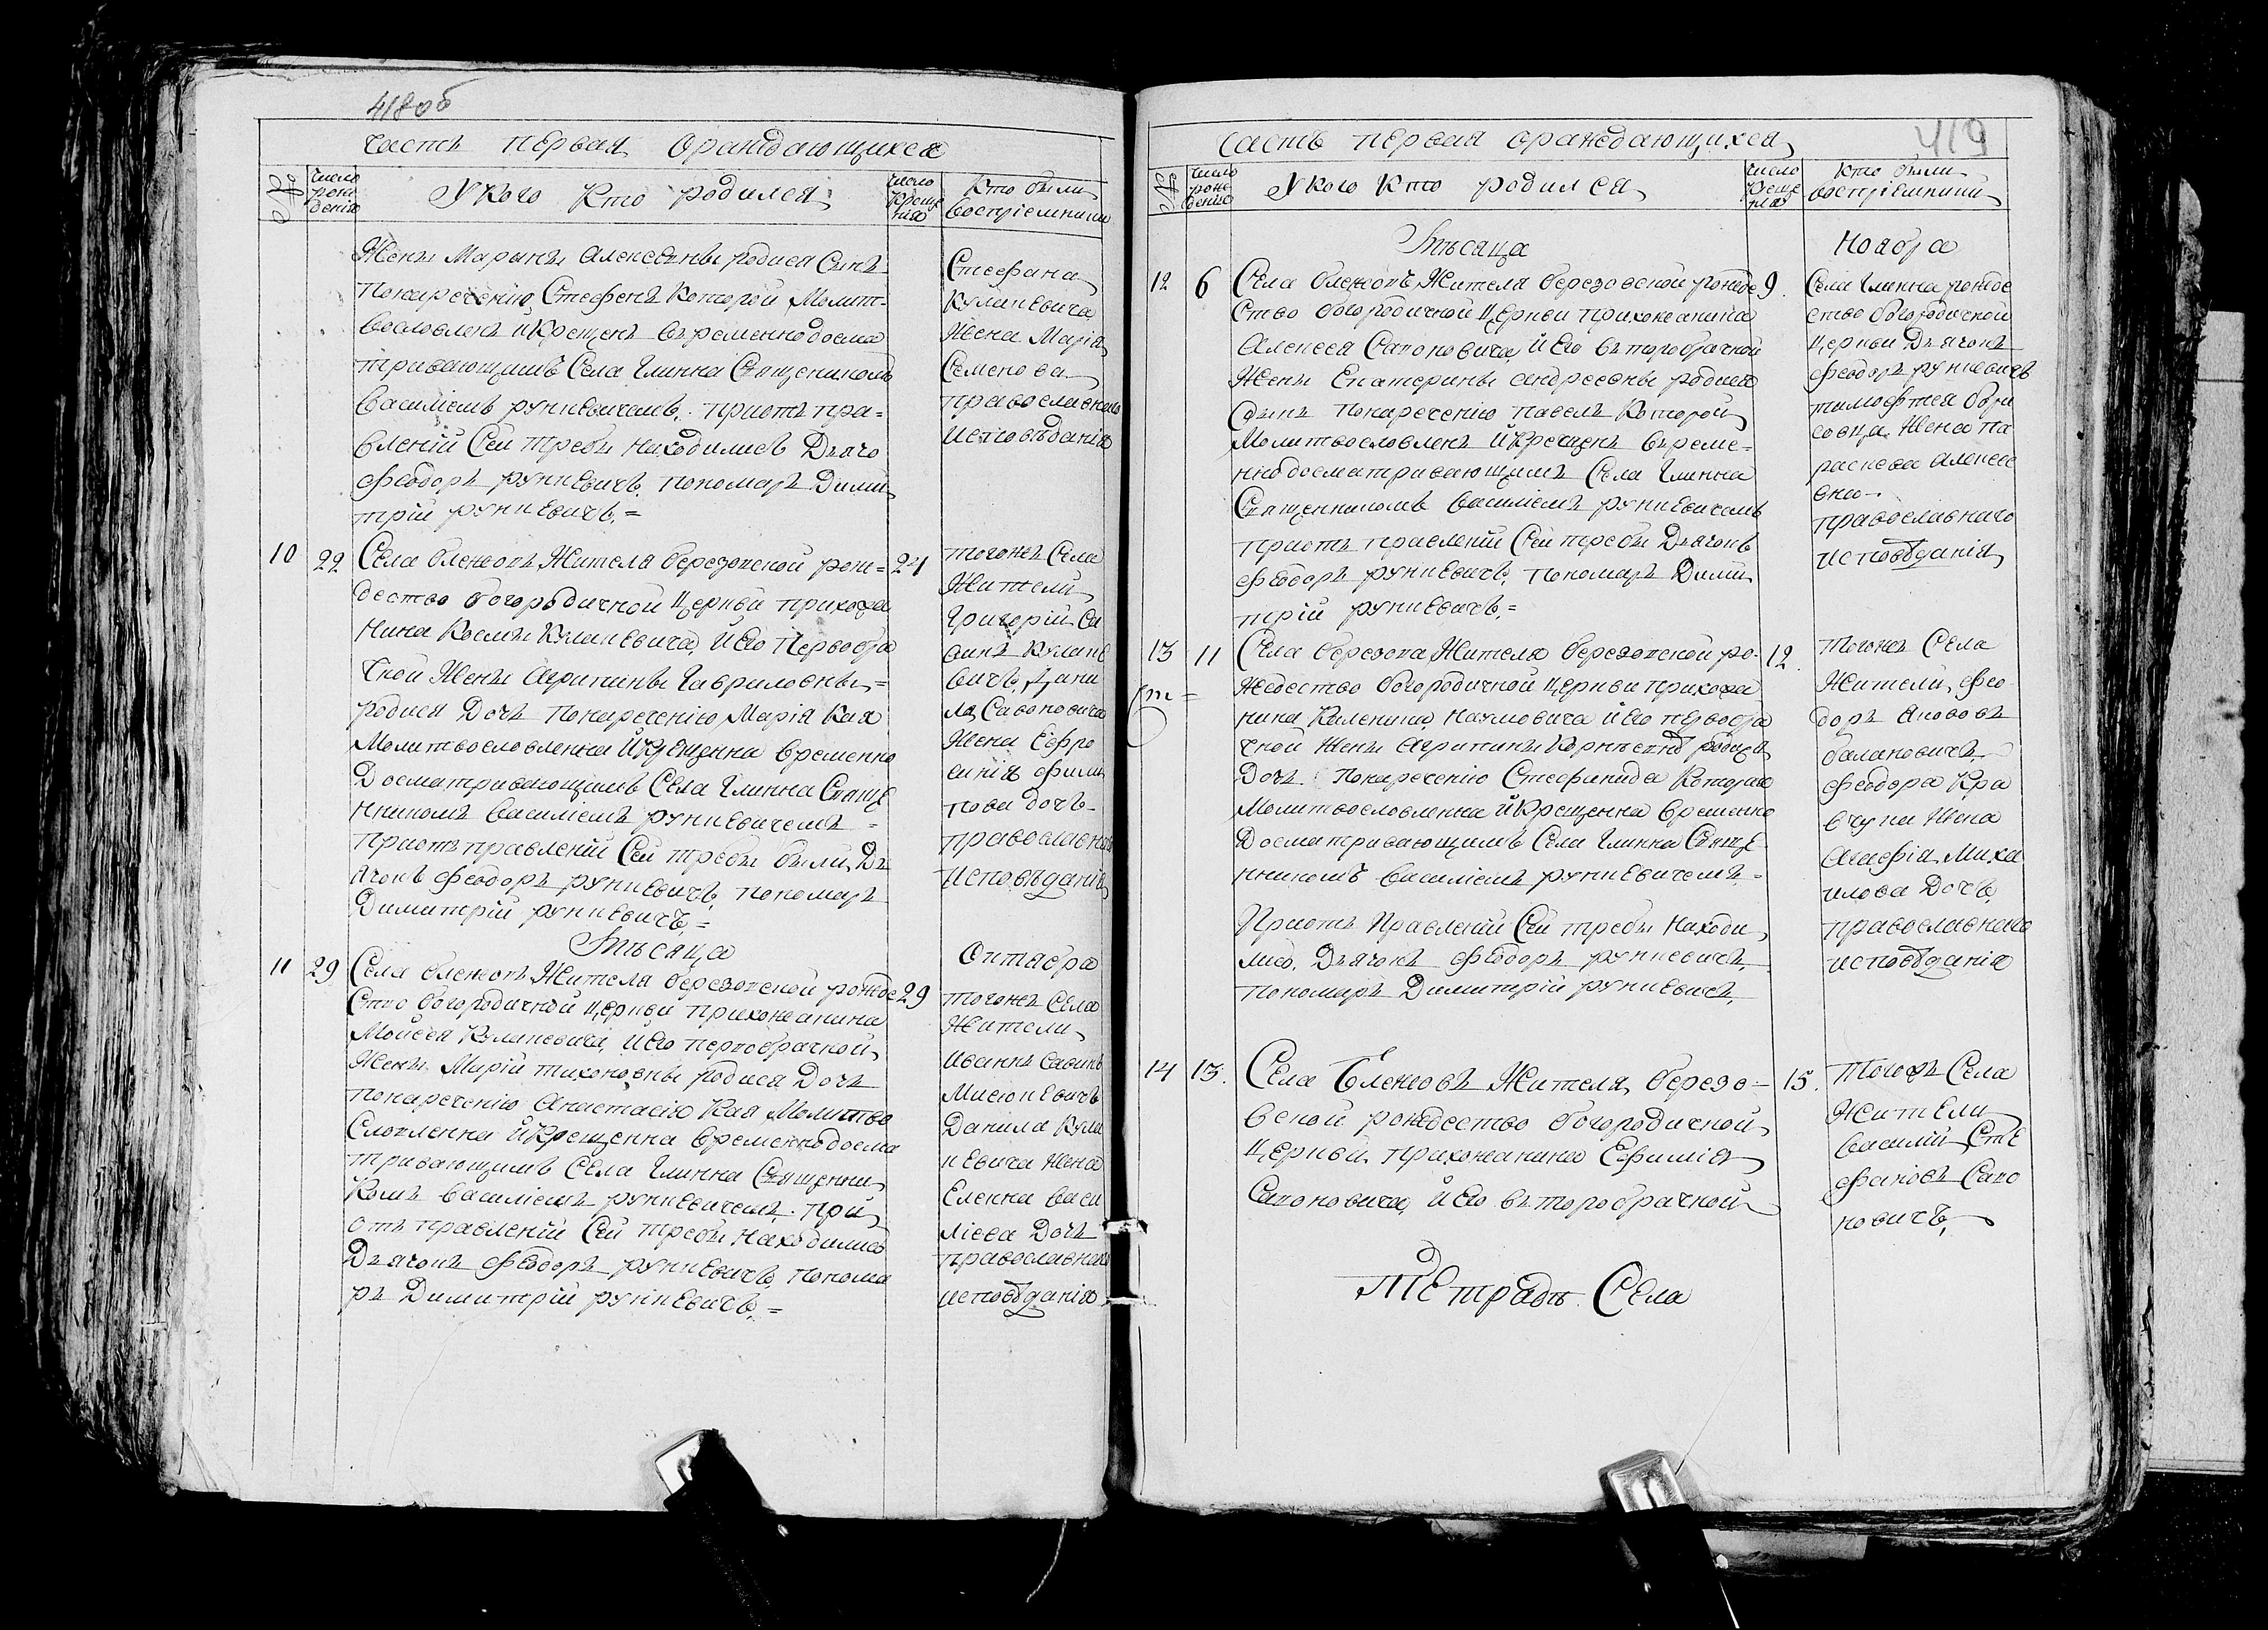 418об
часть первая о раждающихся
№
число
рож
дения
У кого кто родился
число
креще
ния
кто были
восприемники
Жены Марины Алексеевны родися Сынъ
понаречению Стефенъ которой Молит-
вословленъ и Крещенъ временно досма
тривающимъ Села Глинна Священикомъ
Василиемъ рункевичемъ. приотъ пра-
влении Сей требы находились Дьячо
Феодоръ рункевичъ, пономаръ Дими
трий рункевичъ.=
Стефана
Кулакевича
Жена Мария
Семенова
православнаго
исповѣдания
10
22
Села блежовъ Жителя березовской рож=
дество богородичной Церкви прихожа
нина Космы Кулакевича, и Его Первобра
чной Жены Агрипины Гавриловны=
родися Дочъ понаречению Мария Кая
Молитвословленна и Крещенна временно
Досматривающимъ Села Глинна Свяще
нникомъ Василиемъ рункевичемъ =
приотъ правлений Сей требы были, Дь
ячокъ Феодоръ рункевичъ, пономаръ
Димитрий рункевичъ,=
24
тогожъ Села
Жители
Григорий Са
винъ Кулаке
вичъ, Дани
ла Савоновича
Жена Евфро
синия Фили
пова дочъ-
православнаго
исповѣдания
Мѣсяца
Октября
11
29
Села блежовъ Жителя березовской рожде
ство богородичной Церкви прихожанина
Мойсея Кулакевича, и Его первобрачной
Жены Марии тихоновны родися Дочъ
понаречению Анастасию Кая Молитво
Словленна и Крещенна временно досма
тривающимъ Села Глинна Священни
комъ Василиемъ рункевичемъ. при
отъ правлений Сей требы находились
Дьячокъ Феодоръ рункевичъ, понома
ръ Димитрий рункевичъ,=
29
тогожъ Села
Жители
Иванъ Савинъ
Мисюкевичъ
Данила Кула
кевича Жена
Еленна Васи
лиева Дочъ
православнаго
исповѣдания
419
Часть первая о раждающихся
№
число
рож
дения
У кого кто родился
число
креще
ния
кто были
восприемники
Мѣсяца
Ноября
12
6
Села блежовъ Жителя березовской рожде
Ство богородичной Церкви прихожанина
Алексея Сапоновича, и Его второбрачной
Жены Екатерины Андреевны родися
Сынъ понаречению павелъ Которой
Молитвословленъ и Крещенъ време-
нно досматривающимъ Села Глинна
Священникомъ Василиемъ рункевичемъ
приотъ правлений Сей требы Дьячокъ
Феодоръ рункевичъ, пономаръ Дими
трий рункевичъ,=
9
Села Глинна рожде
ство богородичной
Церкви Дьячокъ
Феодоръ рункевичъ
тимофтея бори
совца Жена па
раскева Алексе
вна-
православнаго
исповѣдания
13
11
Села березова Жителя березовской ро-
Ждество богородичной Церкви прихожа
нина Каленика Наумовича и Его первобра
чной Жены Агрипины Корнѣевны родися
Дочъ. понаречению Стефанида Которая
Молитвословленна и Крещенна временно
Досматривающимъ Села Глинна Свяще
нникомъ Василиемъ рункевичемъ-
Приотъ Правлений Сей требы Находи
лись. Дьячокъ Феодоръ рункевичъ,
пономаръ Димитрий рункевичъ,
12
тогожъ Села
Жители, Фео
доръ Яковъ
балановичъ
Феодора Кра
вчука Жена
Агафия Миха
илова Дочъ
православнаго
исповѣдания
14
13
Села Блежовъ Жителя, березо-
вской рождество богородичной
Церкви прихожанина Ефимия
Сапоновича, и Его второбрачной
15
тогожъ Села
Жители
Василий Сте
фановъ Сапо
новичъ,
Тетрадъ Села